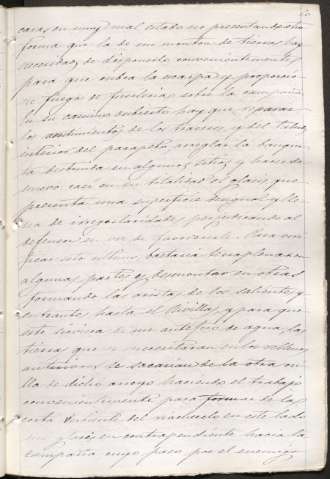 caras, en muy mal estado no presentando otra
forma que la de un monton de tierra hay
necesidad de disponerla convenientemente
para que cubra la escarpa y proporcio
ne fuegos de fusileria sobre la campaña
En su camino cubierto hay que reparar
los revestimientos de los traveses, y del talud
interior del parapeto, arreglar la banque
ta destruida en algunos sitios y hacer de
nuevo casi en su totalidad el glasis, que
presenta una superficie desigual y lle
na de irregularidades perjudicando al
defensor en vez de favorecerle. Para
este ultimo, bastaria terraplenar en
algunas partes y desmontar en otras
formando las aristas de los salientes y
entrantes hasta el Rivillas, y para que
este sirviera de un ante foso de agua, las
tierras que se necesitaran en los
anteriores se sacarian de la otra ori
lla de dicho arroyo haciendo el trabajo
convenientemente para formar de la
corta vertiente del riachuelo en este lado
un glasis en contrapendiente hacia la
campaña cuyo paso por el enemigo